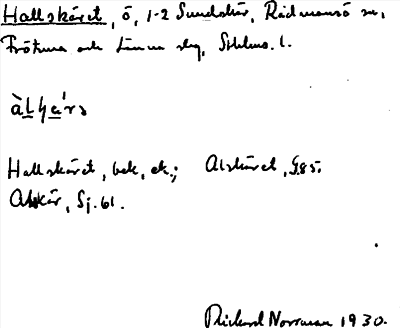 Hallskäret, ö, 1-2 Sundskär, Rådmansö sn,
Frötuna och Länna slg, Sthlms. l.
Hallskäret, bek, ek.; Alskäret, G.85.
Alskär, Sj. 61.
Rickard Norrman 1930.